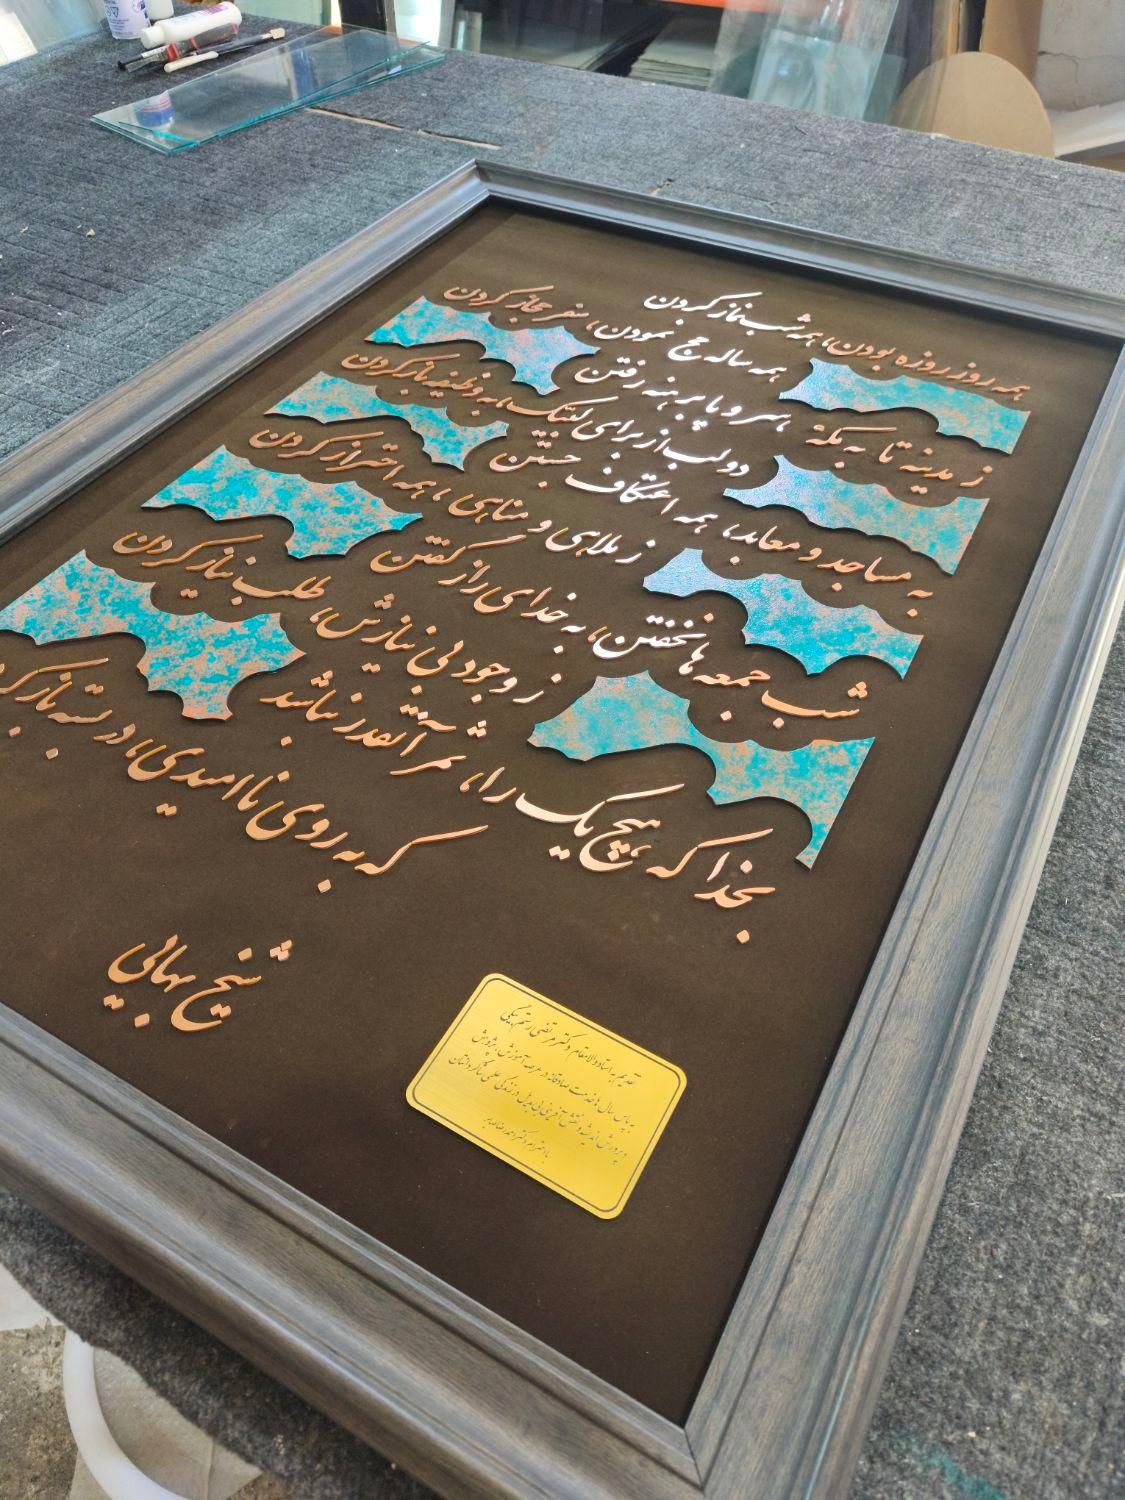 همه روز روزه بودن، همه شب نماز کردن
همه ساله حج نمودن، سفر حجاز کردن
ز مدینه تا به مکه، سر و پا برهنه رفتن
دو لب از برای لبیک، به وظیفه باز کردن
به مساجد و معابد، همه اعتکاف جستن
ز ملاهی و مناهی، همه احتراز کردن
شب جمعه ها نخفتن، به خدای راز گفتن
ز وجود بی نیازش، طلب نیاز کردن
بخدا که هیچ یک را، ثمر آنقدر نباشد
که به روی ناامیدی، در بسته باز کر
شیخ بهایی
تقدیم به استاد والامقام دکتر مرتضی
به پاس سال ها خدمت صادقانه در عرصه آموزش، پژوهش
و پرورش اندیشه و نقش آفرینی بی بدیل در زندگی علمی شاگردانتان
با احترام دکتر